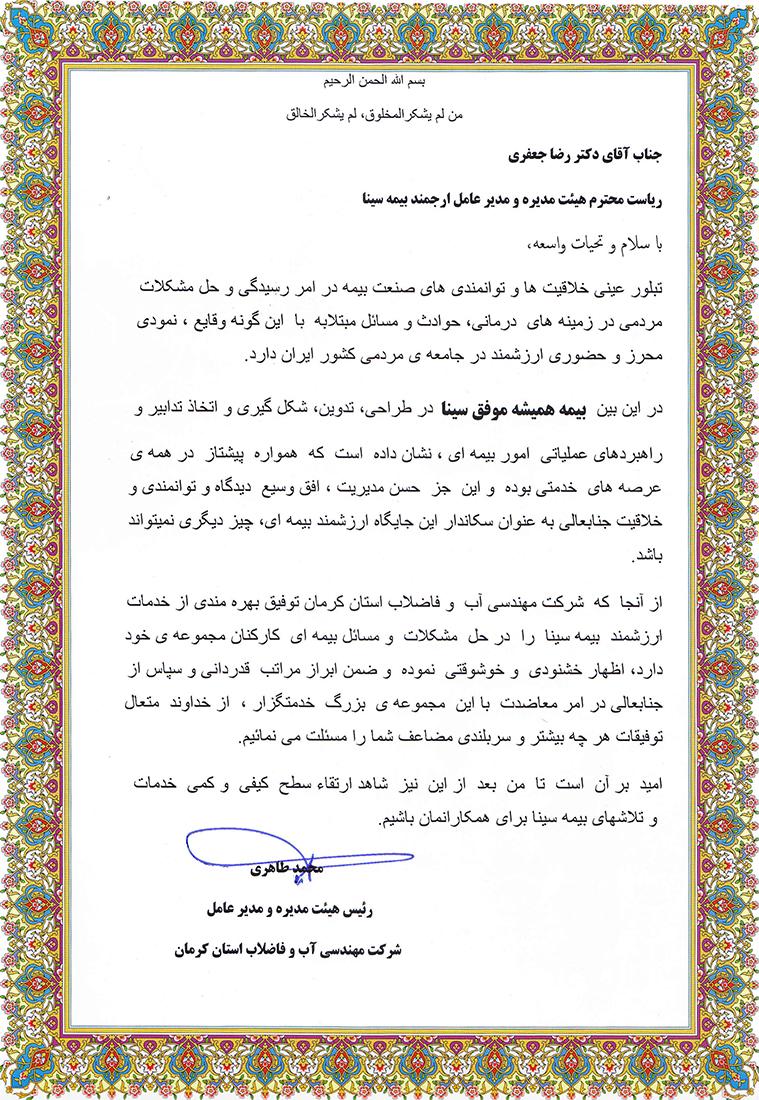 بسم الله الحمن الرحیم
من لم یشکرالمخلوق، لم یشکرالخالق
جناب آقای دکتر رضا جعفری
ریاست محترم هیئت مدیره و مدیر عامل ارجمند بیمه سینا
با سلام و تحیات واسعه،
تبلور عینی خلاقیت ها و توانمندی های صنعت بیمه در امر رسیدگی و حل مشکلات
مردمی در زمینه های درمانی، حوادث و مسائل مبتلابه با این گونه وقایع ، نمودی
محرز و حضوری ارزشمند در جامعه ی مردمی کشور ایران دارد.
در این بین بیمه همیشه موفق سینا در طراحی، تدوین، شکل گیری و اتخاذ تدابیر و
راهبردهای عملیاتی امور بیمه ای ، نشان داده است که همواره پیشتاز در همه ی
عرصه های خدمتی بوده و این جز حسن مدیریت ، افق وسیع دیدگاه و توانمندی و
خلاقیت جنابعالی به عنوان سکاندار این جایگاه ارزشمند بیمه ای، چیز دیگری نمیتواند
باشد.
از آنجا که شرکت مهندسی آب و فاضلاب استان کرمان توفیق بهره مندی از خدمات
ارزشمند بیمه سینا را در حل مشکلات و مسائل بیمه ای کارکنان مجموعه ی خود
دارد، اظهار خشنودی و خوشوقتی نموده و ضمن ابراز مراتب قدردانی و سپاس از
جنابعالی در امر معاضدت با این مجموعه ی بزرگ خدمتگزار ، از خداوند متعال
توفیقات هر چه بیشتر و سربلندی مضاعف شما را مسئلت می نمائیم.
امید بر آن است تا من بعد از این نیز شاهد ارتقاء سطح کیفی و کمی خدمات
و تلاشهای بیمه سینا برای همکارانمان باشیم.
محمد طاهری
رئیس هیئت مدیره و مدیر عامل
شرکت مهندسی آب و فاضلاب استان کرمان